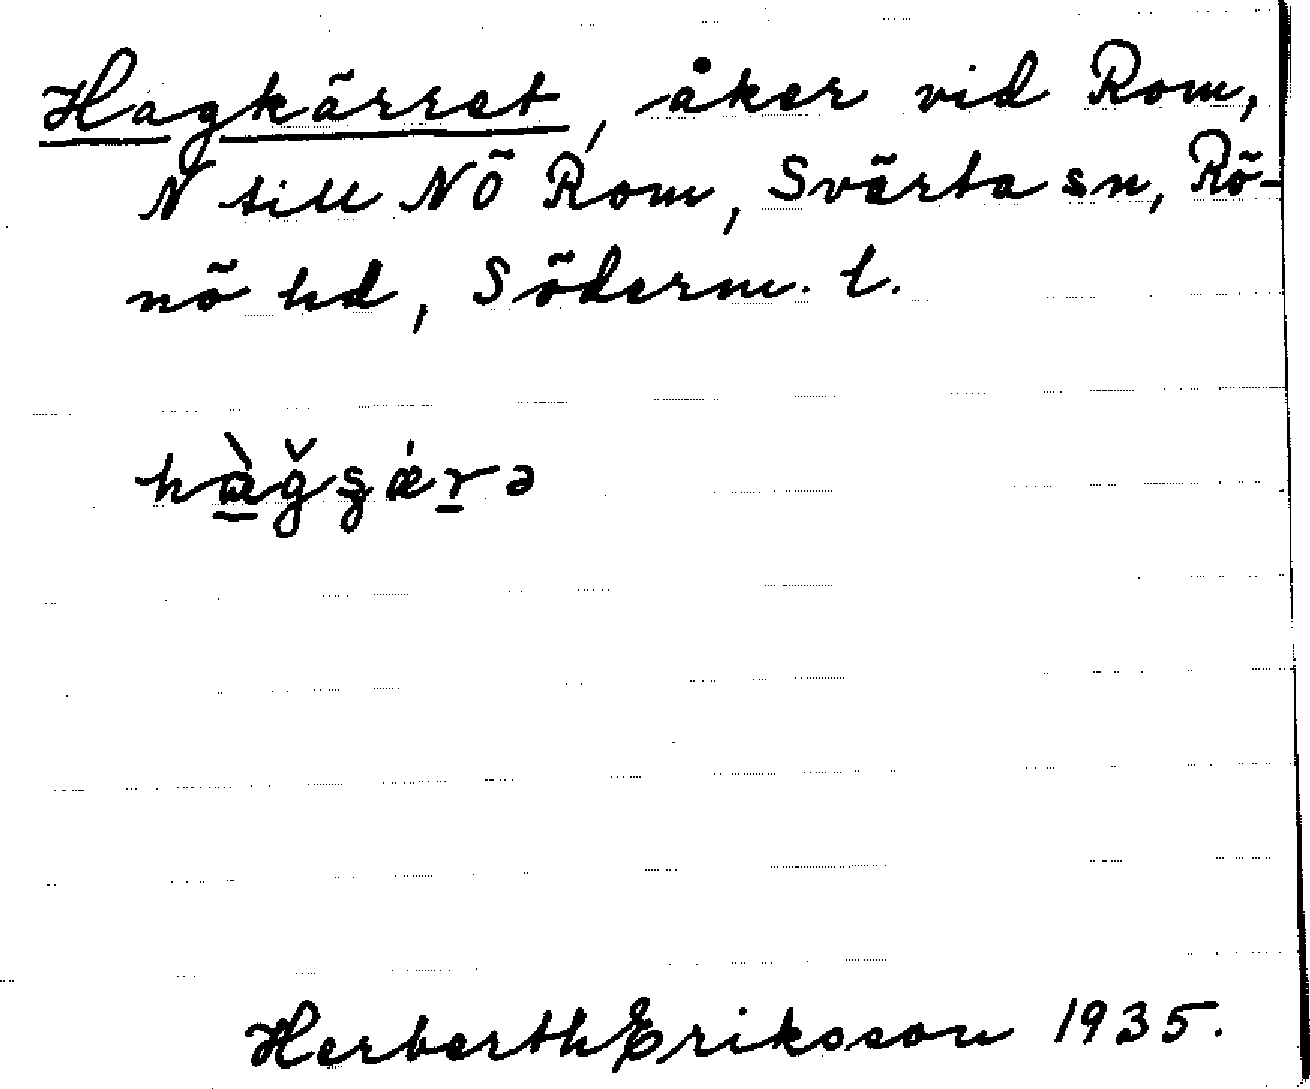 Hagkärret, åker vid Rom,
N till NÖ Rom, Svärta sn, Rö-
nö hd, Söderm. l.
Herberth Eriksson 1935.